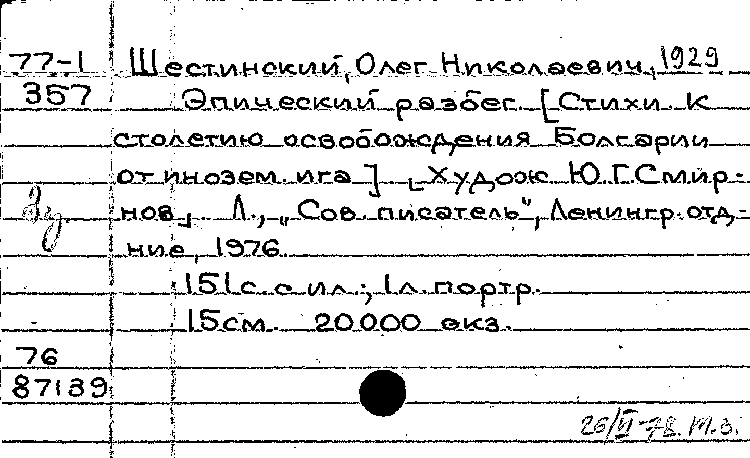 77-1 Шестинский, Олег Николаевич, 1929
357 Эпический разбег. [Стихи к
столетию освобождения Болгарии
от инозем. ига]. [Худож. Ю.Г.Смир-
нов]. Л., „Сов. писатель", Ленингр. отд-
ние, 1976.
151 с. с ил.; 1 л. портр.
15см. 20000 экз.
76
87139
26/II-78. т.з.